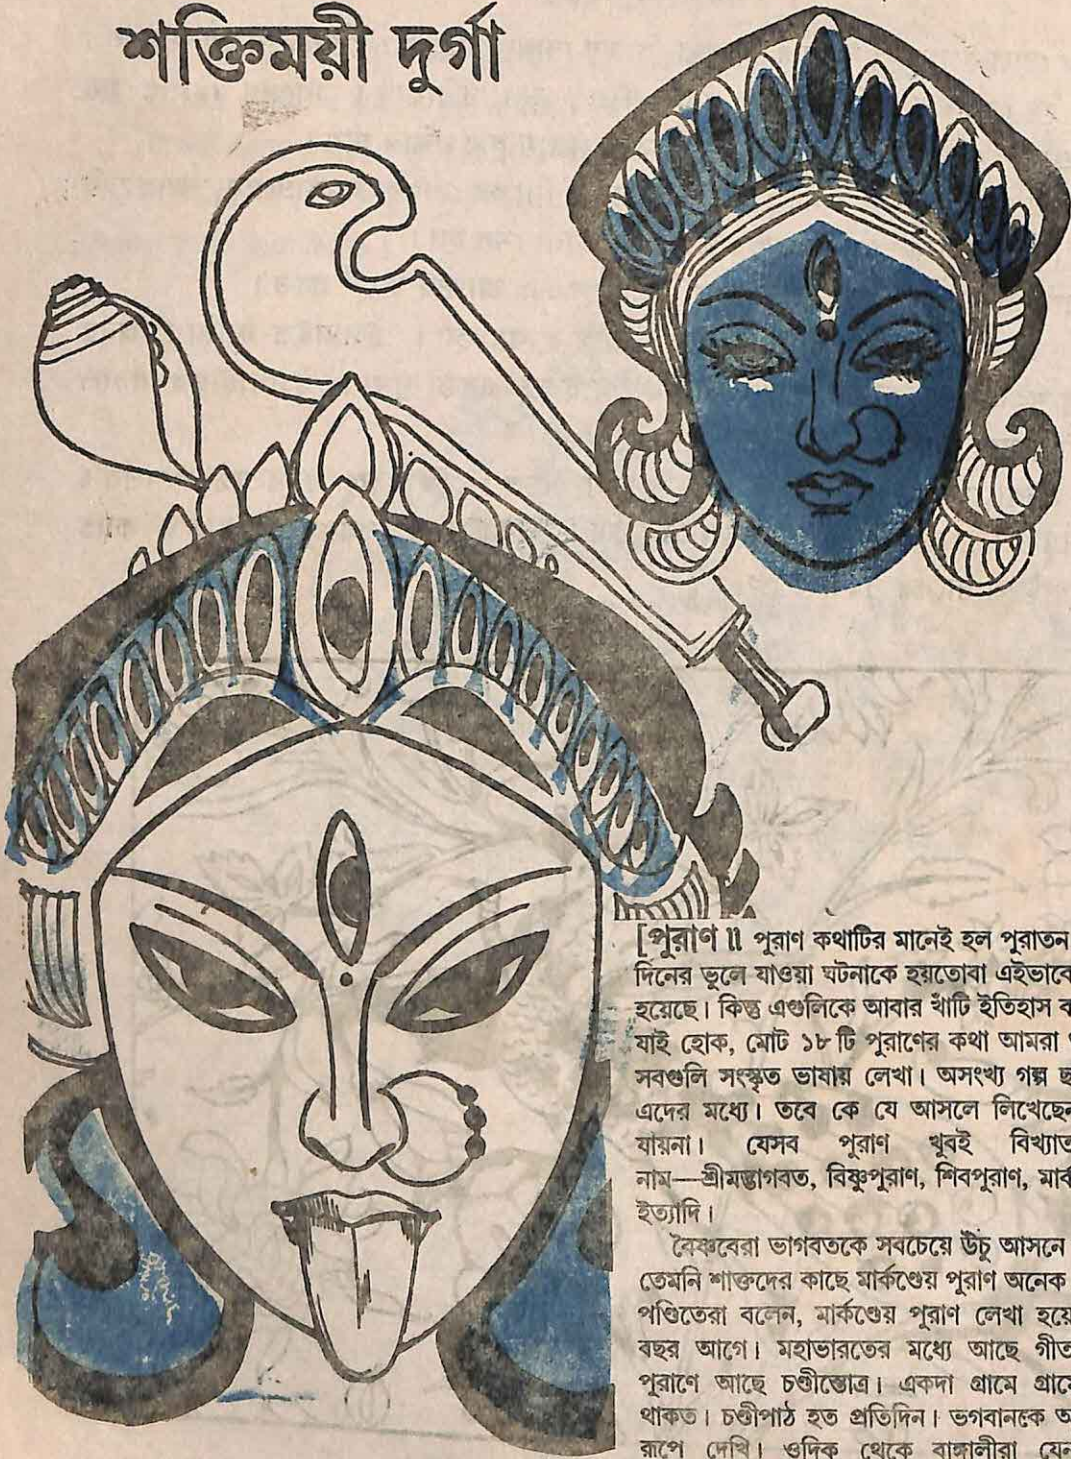 শক্তিময়ী দুর্গা
[পুরাণ ॥ পুরাণ কথাটির মানেই হল পুরাতন
দিনের ভুলে যাওয়া ঘটনাকে হয়তোবা এইভাবে
হয়েছে। কিন্তু এগুলিকে আবার খাঁটি ইতিহাস
যাই হোক, মোট ১৮ টি পুরাণের কথা আমরা
সবগুলি সংস্কৃত ভাষায় লেখা। অসংখ্য গল্প
এদের মধ্যে। তবে কে যে আসলে লিখেছেন
যায়না। যেসব পুরাণ খুবই বিখ্যাত
নাম—শ্রীমদ্ভাগবত, বিষ্ণুপুরাণ, শিবপুরাণ,
ইত্যাদি।
বৈষ্ণবেরা ভাগবতকে সবচেয়ে উঁচু আসনে
তেমনি শাক্তদের কাছে মার্কণ্ডেয় পুরাণ অনেক
পণ্ডিতেরা বলেন, মার্কণ্ডেয় পুরাণ লেখা
বছর আগে। মহাভারতের মধ্যে আছে
পুরাণে আছে চণ্ডীস্তোত্র। একদা গ্রামে
থাকত। চণ্ডীপাঠ হত প্রতিদিন। ভগবানকে
রূপে দেখি। ওদিক থেকে বাঙ্গালীরা যেন